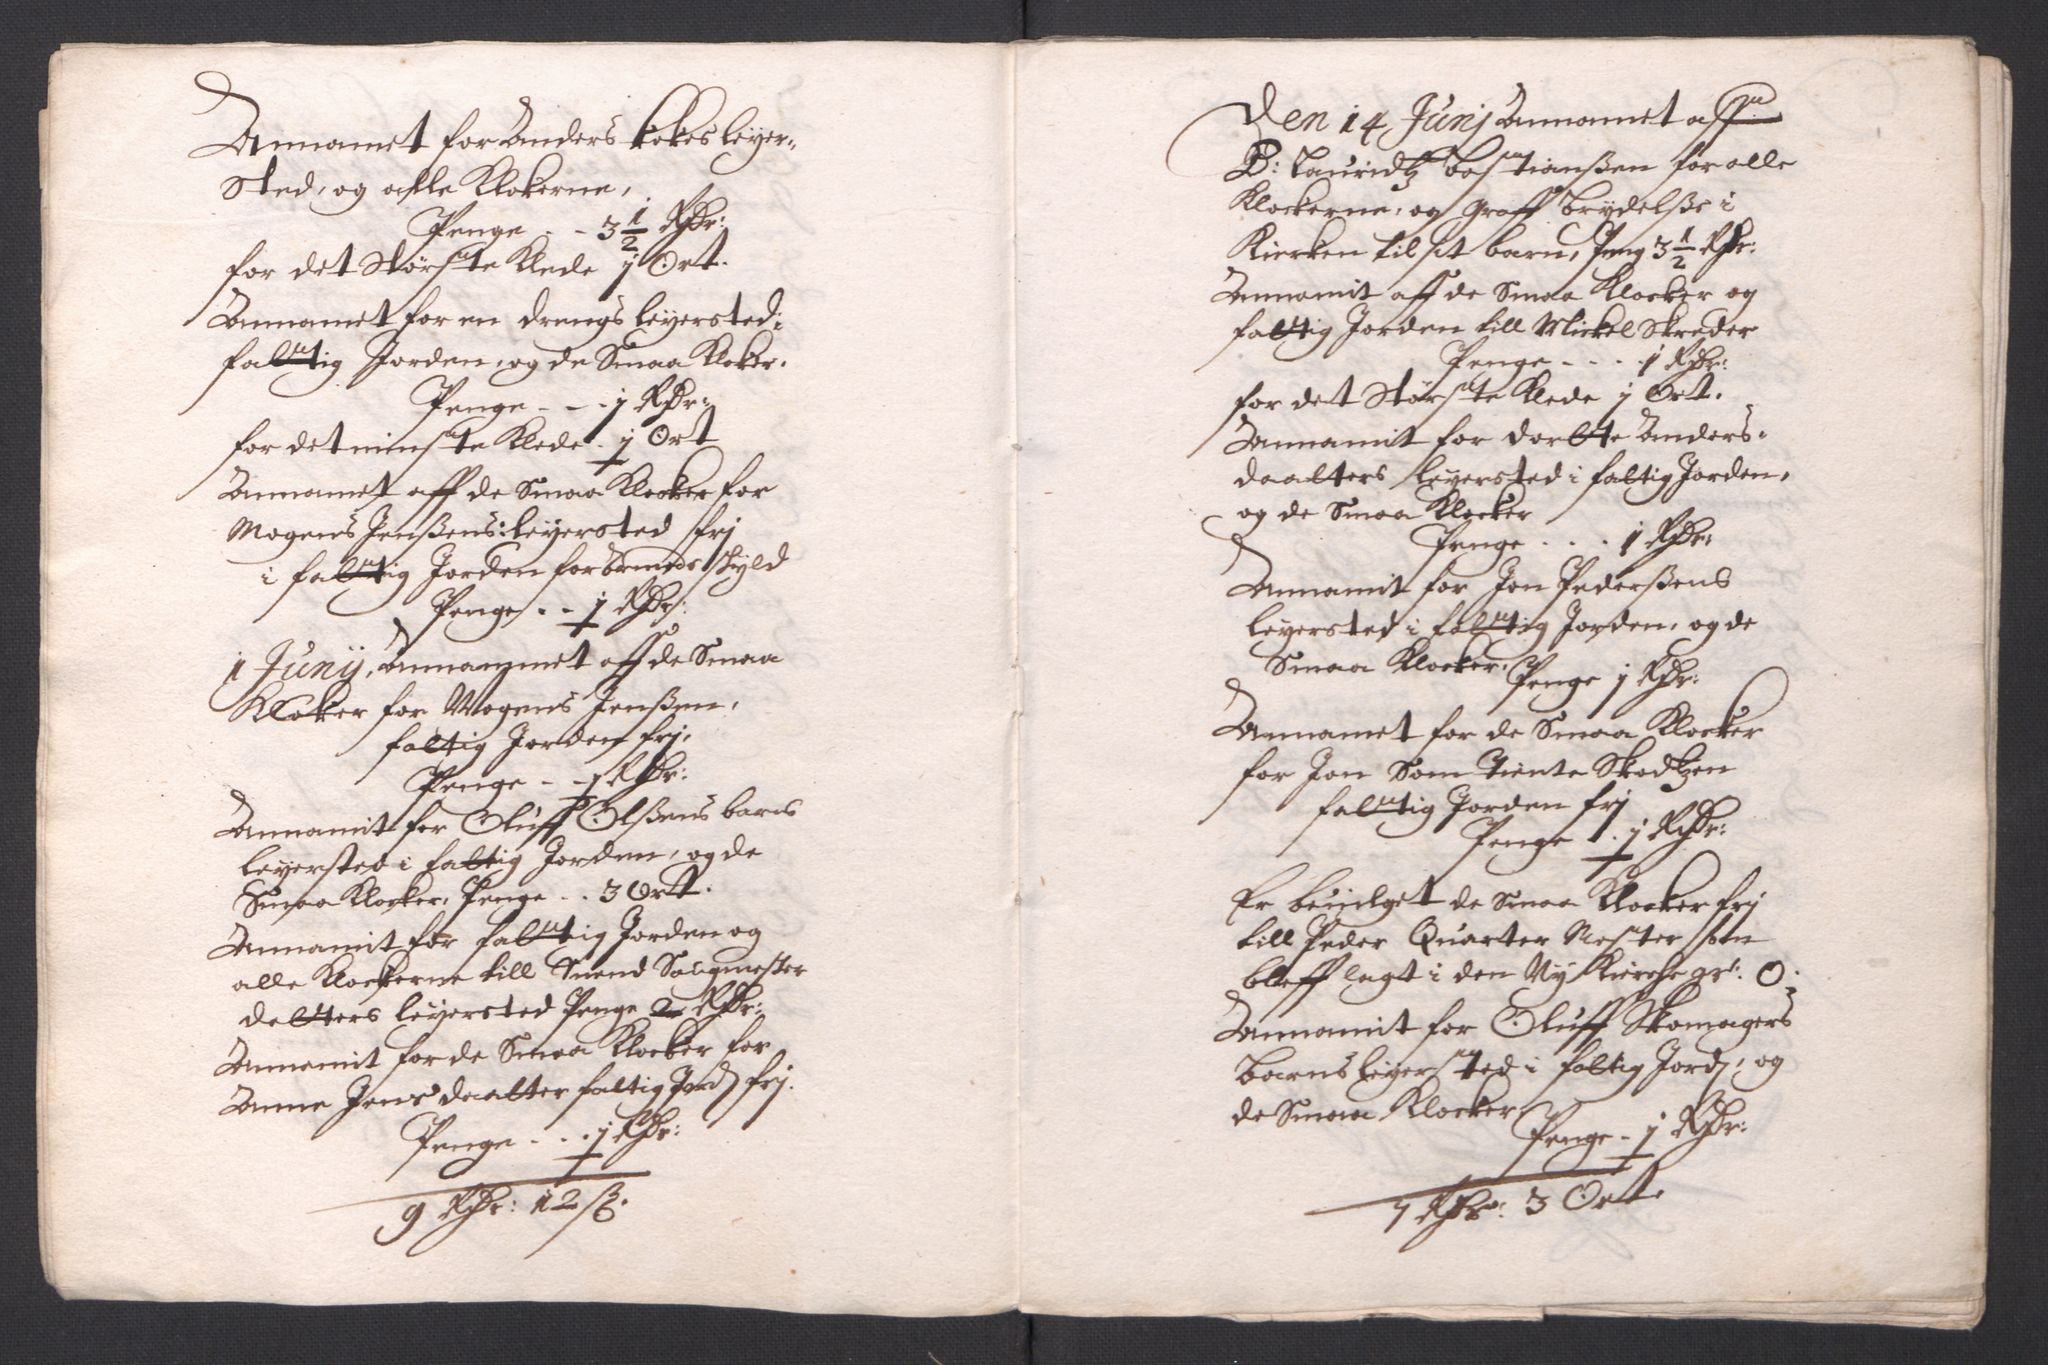 Annamet for Anders kokes leyer-
Sted, og alle Klokerne,
Penge - - 3 1/2 RDr:
for det Største Klede j Ort.
Annamet for en drengs leyersted i
faltig Jorden, og de Smaa Kloker.
Penge - - - j RDr:
for det minste Klede . j Ort
Annamet aff de Smaa Klocker for
Mogens Jenßens: leyersted frj
i faltig Jorden for armods skyld
Penge - - j RDr:
1 Junij, Annammet aff de Smaa
Kloker for Mogens Jenßen,
faltig Jorden frj,
Penge - - j RDr:
Annamit for Oluff Olßens barns
leyersted i faltig Jorden, og de
Smaa Klocker, Penge . . 3 Ort.
Annamit for faltig Jorden og
alle Klockerne till Suend Saugmester
delters leyersted Penge 2 RDr:
Annamit for de Smaa Klocker for
Anne Jens daatter faltig Jord frj.
Penge - - . j RDr:
9 RDr: 12 ß.
Den 14 Junj Annamet aff
B: Lauridtz Bastianßen for alle
Klockerne, og Graff brydelße i
Kierken til sit barn, Peng 3 1/2 RDr:
Annamit aff de Smaa Klocker og
faltig Jorden till Mickel Skreder
Penge - - - . 1 RDr:
for det Største Klede j Ort.
Annamit for Dorethe Anders-
daatters leyersted i faltig Jorden,
og de Smaa Klocker
Penge . . . 1 RDr:
Annamit for Jon Pederßens
leyersted i faltig Jorden, og de
Smaa Klocker, Penge j RDr:
Annamet for de Smaa Klocker
for Jon Som tiente Skodtzen
faltig Jorden frj
Penge . j RDr:
Er beuilget de Smaa Klocker frj
till Peder Quarter Mester som
bleff lagt i den Ny Kierche gr: 0:
Annamit for Oluff Skomagers
barns leyersted i faltig Jord, og
de Smaa Klocker
Penge - j RDr:
7 RDr: 3 Ort.